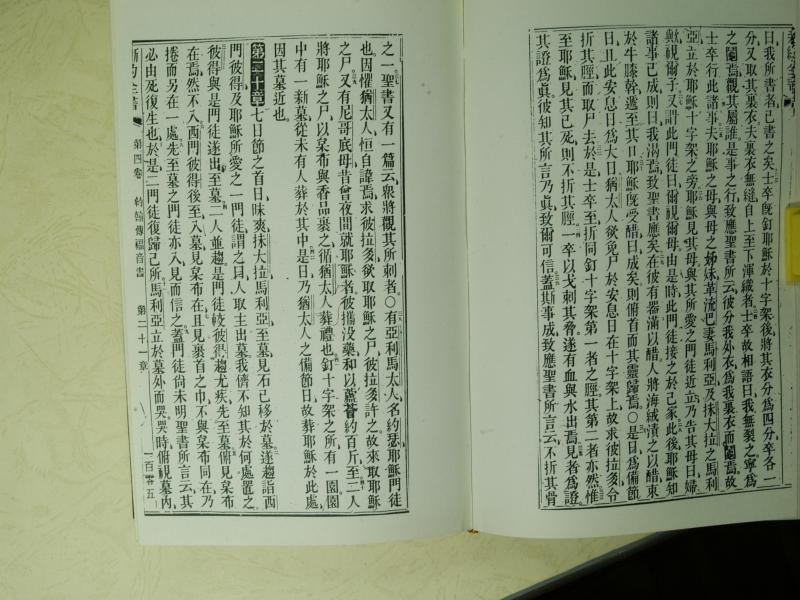 曰我所書者已書之矣士卒既釘耶穌於十字架後將其衣分爲四分卒各一
分又取其裏衣夫裏衣無縫自上至下渾織者士卒故相語曰我無裂之寧爲
之鬮焉觀其屬誰是事之行致應聖書所云彼分我外衣爲我裏衣而鬮焉故
士卒行此諸事夫耶穌之母與母之姊妹革流巴妻馬利亞及抹大拉之馬利
亞立於耶穌十字架之旁耶穌見其母與其所愛之門徒近立乃告其母曰婦
歟視爾子又謂此門徒曰爾視爾母由是時此門徒接之於己家此後耶穌知
諸事已成則曰我渴焉致聖書應矣在彼有器滿以醋人將海絨漬之以醋束
於牛膝幹遞至其口耶穌既受醋曰成矣則俯首而其靈歸焉○是日爲備節
日且此安息日爲大日猶太人欲免尸於安息日在十字架上故求彼拉多令
折其脛而取尸去於是士卒至折同釘十字架第一者之脛其第二者亦然惟
至耶穌見其已死則不折其脛一卒以戈刺其脅遂有血與水出焉見者爲證
其證爲眞彼知其所言乃眞致爾可信蓋斯事成致應聖書所言云不折其骨
之一聖書又有一篇云衆將觀其所刺者○有亞利馬太人名約瑟耶穌門徒
也因懼猶太人恒自諱焉求彼拉多欲取耶穌之尸彼拉多許之故來取耶穌
之尸又有尼哥底母昔曾夜間就耶穌者彼攜沒藥和以蘆薈約百斤至二人
將耶穌之尸以枲布與香品裹之循猶太人葬禮也釘十字架之所有一園園
中有一新墓從未有人葬於其中是日乃猶太人之備節日故葬耶穌於此處
因其墓近也
第二十章七日節之首日昧爽抹大拉馬利亞至墓見石已移於墓遂趨詣西
門彼得及耶穌所愛之一門徒謂之曰人取主出墓我儕不知其於何處置之
彼得與是門徒遂出至墓二人並趨是門徒較彼得趨尤疾先至墓俯見枲布
在焉然不入西門彼得後至入墓見枲布在且見裹首之巾不與枲布同在乃
捲而另在一處先至墓之門徒亦入見而信之蓋門徒尚未明聖書所言云其
必由死復生也於是二門徒復歸己所馬利亞立於墓外而哭哭時俯視墓內
新約全書 第四卷 約翰傳福音書 第二十一章 一百零五